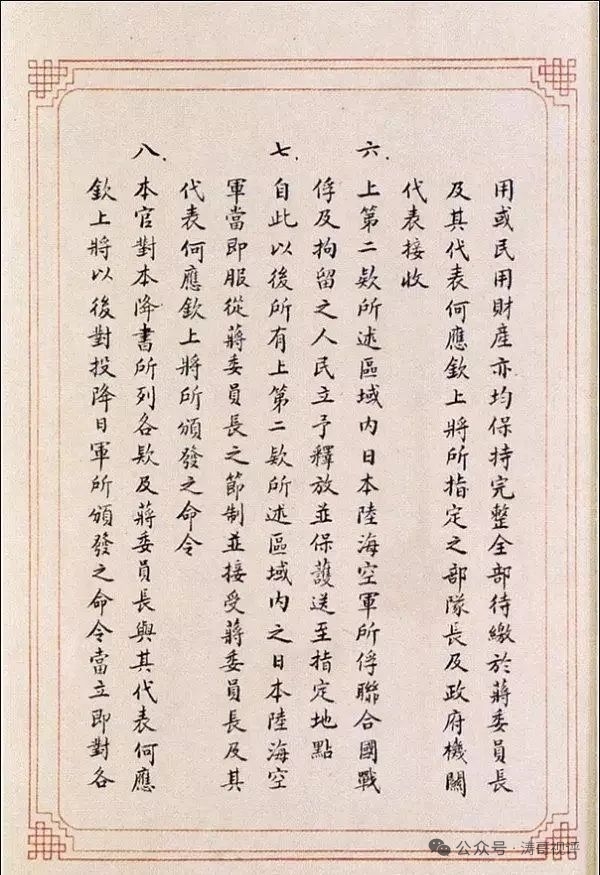 用或民用財產亦均保持完整全部待繳於蔣委員長
及其代表何應欽上將所指定之部隊長及政府機關
代表接收
六.上第二欵所述區域內日本陸海空軍所俘聯合國戰
俘及拘留之人民立予釋放並保護送至指定地點
七.自此以後所有上第二欵所述區域內之日本陸海空
軍當即服從蔣委員長之節制並接受蔣委員長及其
代表何應欽上將所頒發之命令
八.本官對本降書所列各欵及蔣委員長與其代表何應
欽上將以後對投降日軍所頒發之命令當立即對各
公众号·涛哥视评